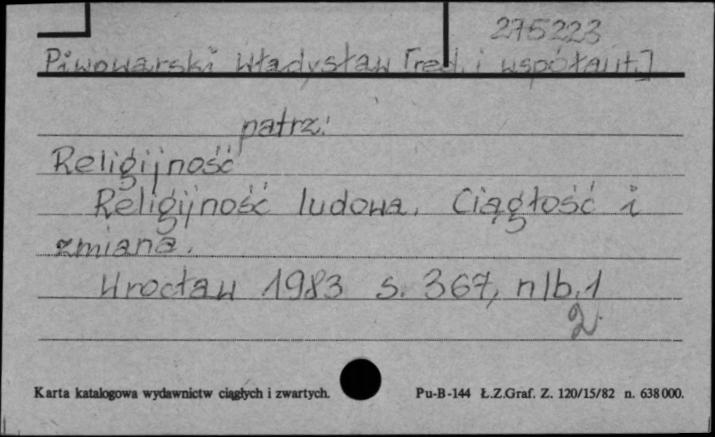 275223
Piwowarski Władysław [red. i współaut.]
patrz:
Religijność
Religijność ludowa. Ciągłość i
zmiana.
Wrocław 1983 s. 367, nlb. 1
2.
Karta katalogowa wydawnictw ciągłych i zwartych. Pu-B-144 Ł.Z.Graf. Z. 120/15/82 n. 638000.